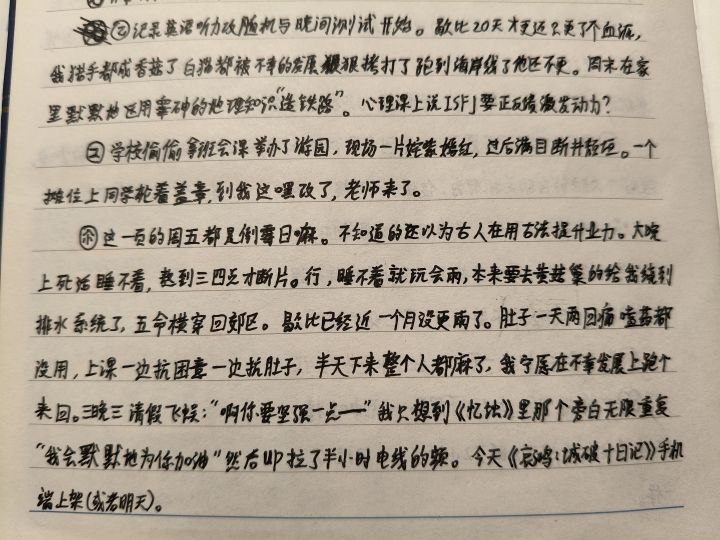 ②记录英语听力改随机与晚间测试开始。歇比20天才更还只更了个血派,
我猎手都成香菇了白猫都被不幸的发展狠狠拷打了跑到海岸线了他还不更。周末在家
里默默地运用霉砷的地理知识"连铁路"。心理课上说ISFJ要正反馈激发动力?
③学校偷偷拿班会课举办了游园,现场一片姹紫嫣红,过后满目断井颓垣。一个
摊位上同学轮着盖章,到我这嘿改了,老师来了。
这一页的周五都是倒霉日嘛。不知道的还以为古人在用古法提升业力。大晚
上死活睡不着,熬到三四点才断片。行,睡不着就玩会雨,本来要去黄菇巢的给我绕到
排水系统了,五命横穿回郊区。歇比已经近一个月没更雨了。肚子一天两回痛嗑药都
没用,上课一边抗困意一边抗肚子,半天下来整个人都麻了,我宁愿在不幸发展上跑个
来回。三晚三请假飞蚊:"啊你要坚强一点——"我只想到《忆蚀》里那个旁白无限重复
"我会默默地为你加油"然后up拉了半小时电线的频。今天《哀鸿:城破十日记》手机
端上架(或者明天)。